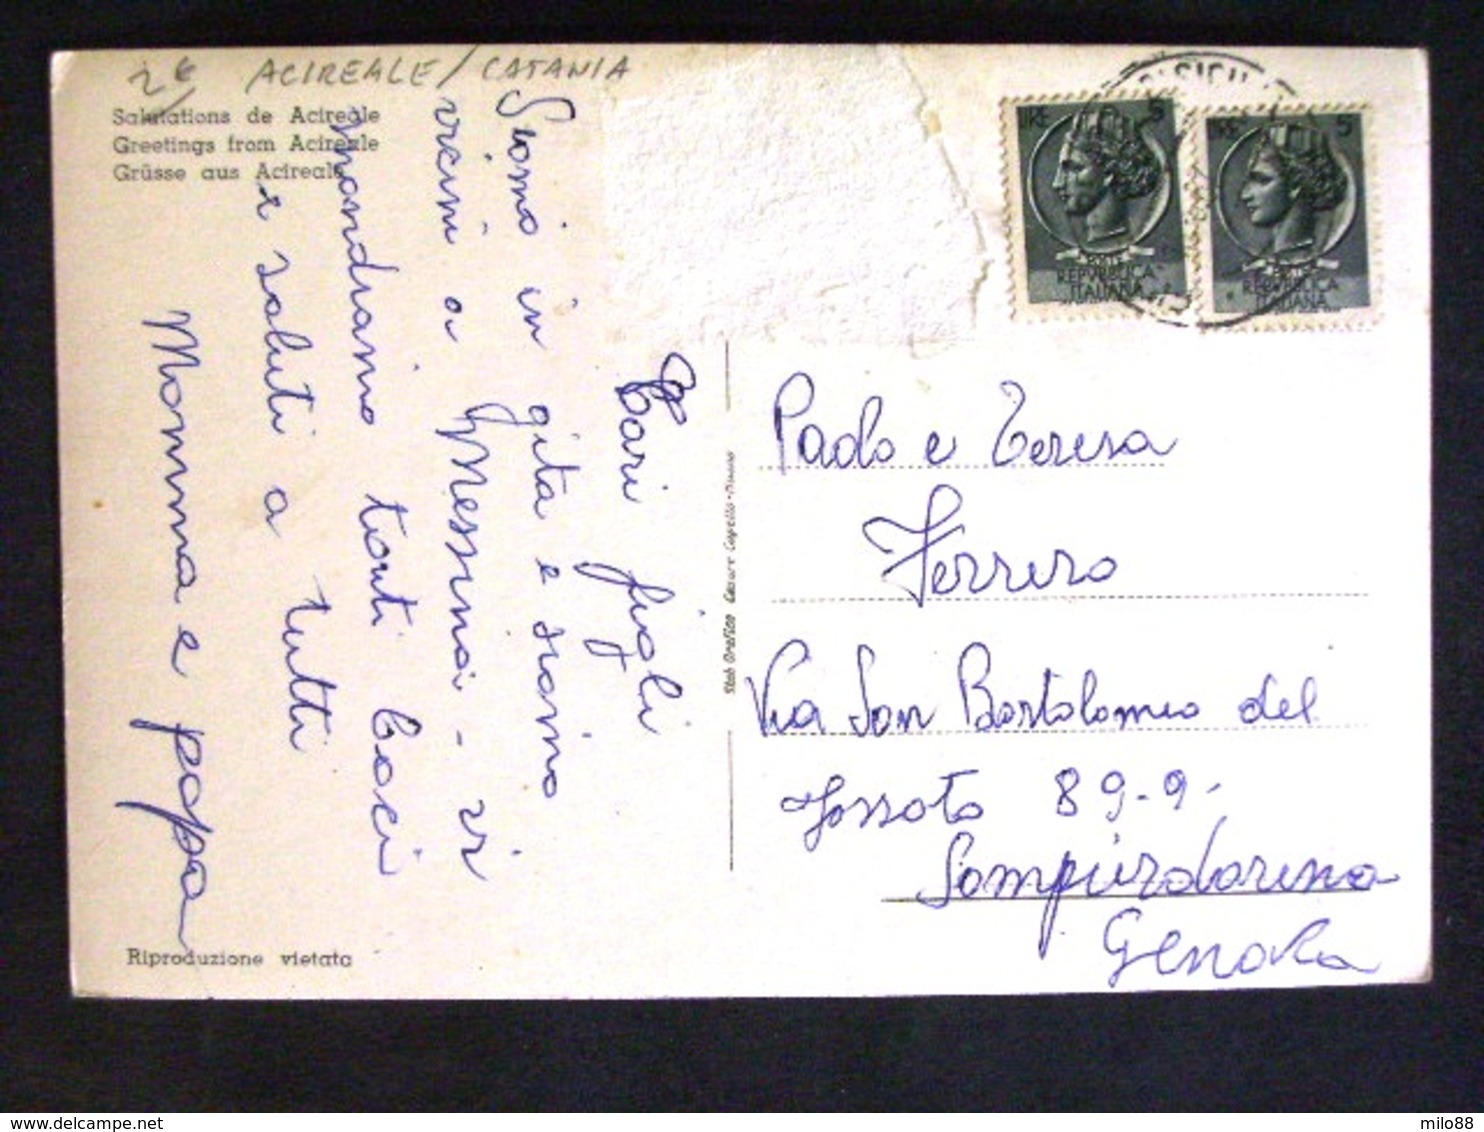 2 € ACIREALE/CATANIA
Salutations de Acireale
Greetings from Acireale
Grüsse aus Acireale
Cari figli
Siamo in gita e siamo
vicini a Messina - vi
mandiamo tanti baci
e saluti a tutti
Mamma e papa
Riproduzione vietata
Stab Grafico Cesare Capello - Milano
LIRE 5
POSTE
REPVBBLICA
ITALIANA
LIRE 5
POSTE
REPVBBLICA
ITALIANA
Paolo e Teresa
Ferrero
Via San Bartolomeo del
Fossato 89-9-
Sampierdarena
Genova
milo88